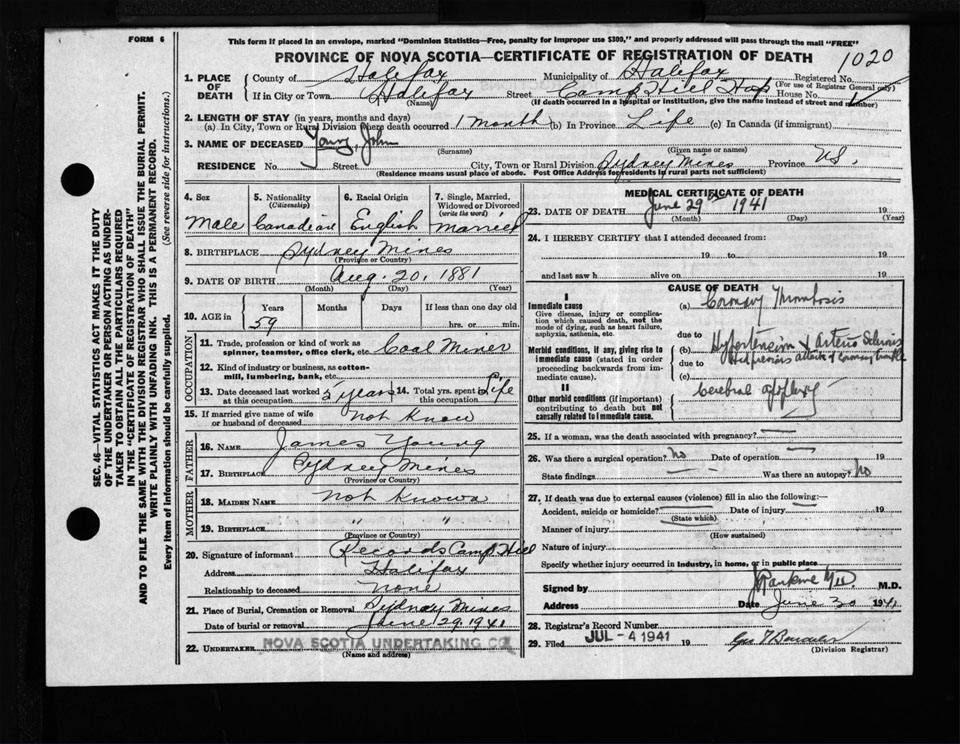 FORM 6
This form if placed in an envelope, marked "Dominion Statistics—Free, penalty for improper use $300," and properly addressed will pass through the mail "FREE"
PROVINCE OF NOVA SCOTIA—CERTIFICATE OF REGISTRATION OF DEATH
1020
1. PLACE OF DEATH
County of Halifax Municipality of Halifax Registered No.
(For use of Registrar General only)
If in City or Town Halifax Street Camp Hill Hosp House No.
(Name) (If death occurred in a hospital or institution, give the name instead of street and number)
2. LENGTH OF STAY (in years, months and days)
(a) In City, Town or Rural Division where death occurred 1 month (b) In Province Life (c) In Canada (if immigrant)
3. NAME OF DECEASED Young, John
(Surname) (Given name or names)
RESIDENCE No. Street City, Town or Rural Division Sydney Mines Province
(Residence means usual place of abode. Post Office Address for residents in rural parts not sufficient)
4. Sex
Male
5. Nationality (Citizenship)
Canadian
6. Racial Origin
English
7. Single, Married, Widowed or Divorced (write the word)
Married
8. BIRTHPLACE Sydney Mines
(Province or Country)
9. DATE OF BIRTH Aug. 20, 1881
(Month) (Day) (Year)
10. AGE in Years Months Days If less than one day old
59 hrs. or min.
OCCUPATION
11. Trade, profession or kind of work as spinner, teamster, office clerk, etc. Coal Miner
12. Kind of industry or business, as cotton-mill, lumbering, bank, etc.
13. Date deceased last worked at this occupation 5 years 14. Total yrs. spent in this occupation Life
15. If married give name of wife or husband of deceased not know
FATHER
16. NAME James Young
17. BIRTHPLACE Sydney Mines
(Province or Country)
MOTHER
18. MAIDEN NAME not known
19. BIRTHPLACE " "
(Province or Country)
20. Signature of informant Records Camp Hill
Address Halifax
Relationship to deceased none
21. Place of Burial, Cremation or Removal Sydney Mines
Date of burial or removal June 29, 1941
22. UNDERTAKER NOVA SCOTIA UNDERTAKING CO.
(Name and address)
MEDICAL CERTIFICATE OF DEATH
23. DATE OF DEATH June 29th 1941 19
(Month) (Day) (Year)
24. I HEREBY CERTIFY that I attended deceased from:
19 to 19
and last saw h alive on 19
CAUSE OF DEATH
I
Immediate cause (a) Coronary Thrombosis
Give disease, injury or complication which caused death, not the mode of dying, such as heart failure, asphyxia, asthenia, etc.
due to
Morbid conditions, if any, giving rise to immediate cause (stated in order proceeding backwards from immediate cause).
(b) Hypertension & Arterio Sclerosis
due to
(c)
II
Other morbid conditions (if important) contributing to death but not causally related to immediate cause.
Cerebral apoplexy
25. If a woman, was the death associated with pregnancy?
26. Was there a surgical operation? No Date of operation
State findings Was there an autopsy? No
27. If death was due to external causes (violence) fill in also the following:—
Accident, suicide or homicide? Date of injury 19
(State which)
Manner of injury
(How sustained)
Nature of injury
Specify whether injury occurred in industry, in home, or in public place
Signed by J Rankine MD. M.D.
Address Date June 30 1941
28. Registrar's Record Number
29. Filed JUL - 4 1941 19
(Division Registrar)
SEC. 46—VITAL STATISTICS ACT MAKES IT THE DUTY OF THE UNDERTAKER OR PERSON ACTING AS UNDERTAKER TO OBTAIN ALL THE PARTICULARS REQUIRED IN THE "CERTIFICATE OF REGISTRATION OF DEATH" AND TO FILE THE SAME WITH THE DIVISION REGISTRAR WHO SHALL ISSUE THE BURIAL PERMIT.
WRITE PLAINLY WITH UNFADING INK. THIS IS A PERMANENT RECORD.
Every item of information should be carefully supplied. (See reverse side for instructions.)